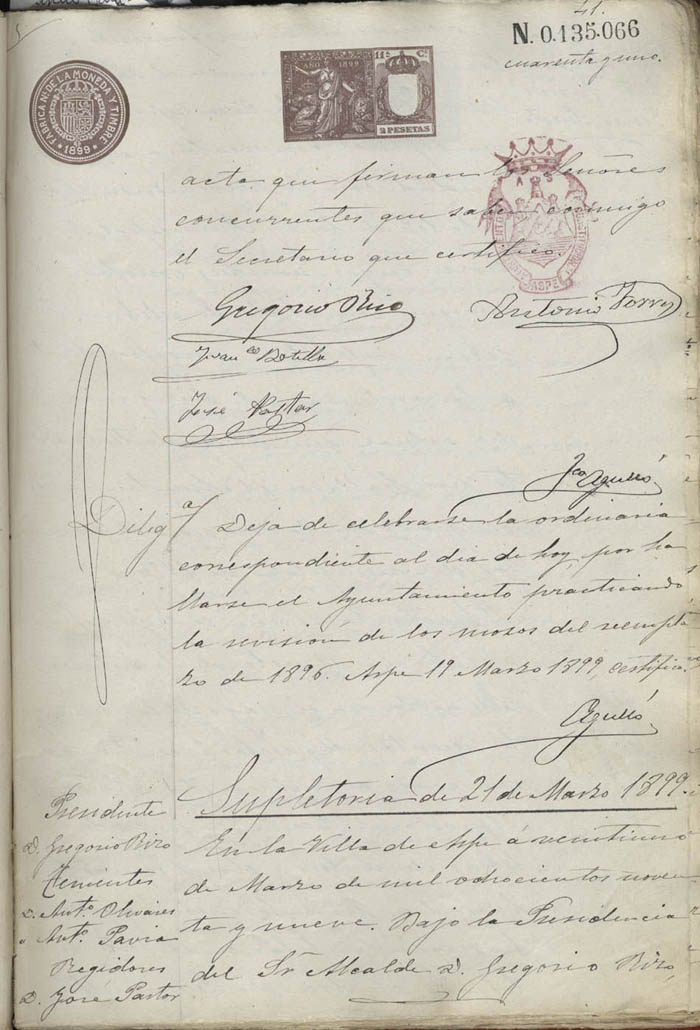 41.
N. 0.135.066
cuarenta y uno.
FABRICA Nl. DE LA MONEDA Y TIMBRE
1899
AÑO 1899
11ª Cª
2 PESETAS
acta que firman los Señores
concurrentes que saben conmigo
el Secretario que certifico.
Gregorio Rizo
Antonio Torres
Franco Botella
José Pastor
Jco Agulló
Diliga/ Deja de celebrarse la ordinaria
correspondiente al dia de hoy, por ha
llarse el Ayuntamiento practicando
la revisión de los mozos del reempla
zo de 1896. Aspe 19 Marzo 1899, certifico.
Agulló
Supletoria de 21 de Marzo 1899.
Presidente
D. Gregorio Rizo
Tenientes
D. Antº Olivares
" Antº Pavia
Regidores
D. José Pastor
En la Villa de Aspe á veintiuno
de Marzo de mil ochocientos noven
ta y nueve. Bajo la Presidencia
del Sr Alcalde D. Gregorio Rizo,